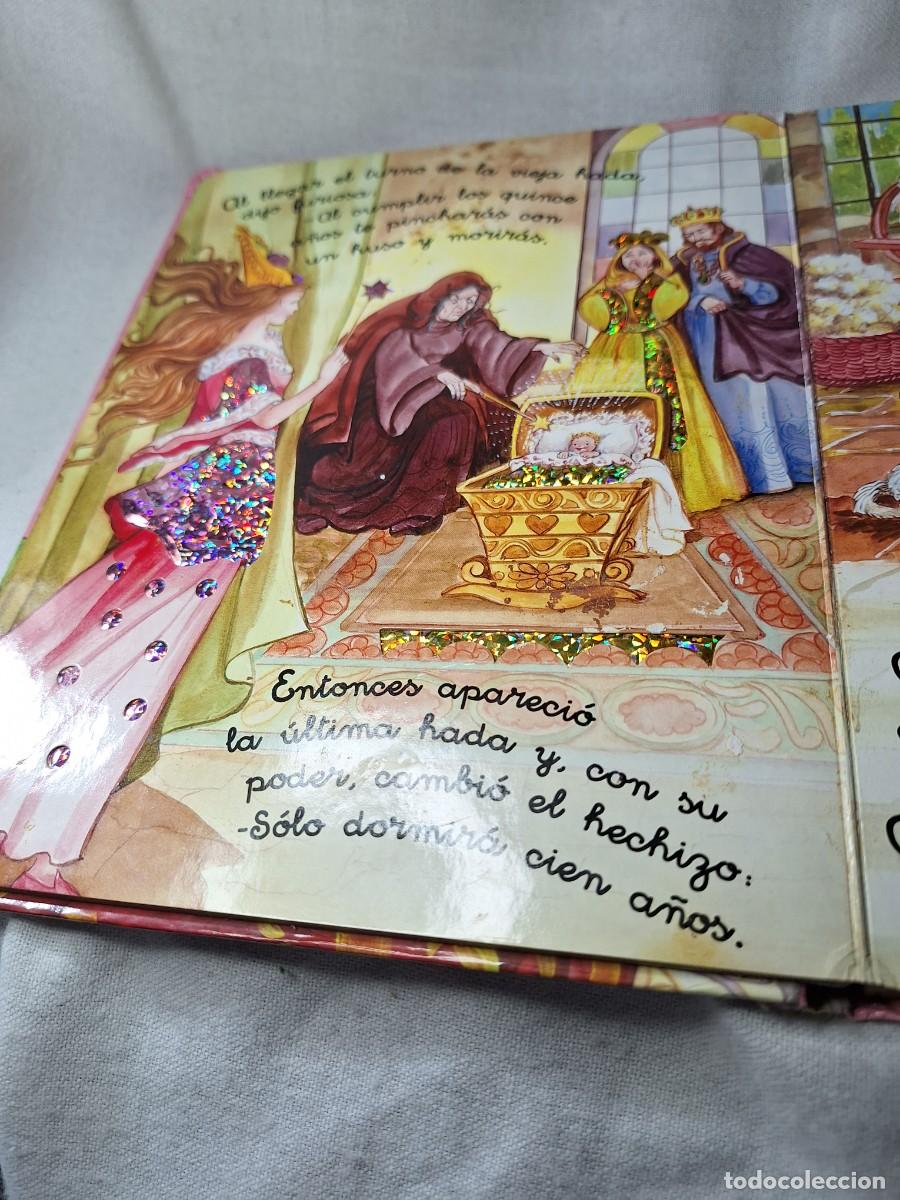 Al llegar el turno de la vieja hada,
dijo furiosa:
-Al cumplir los quince
años te pincharás con
un huso y morirás.
Entonces apareció
la última hada y, con su
poder, cambió el hechizo:
-Sólo dormirá cien años.
todocoleccion